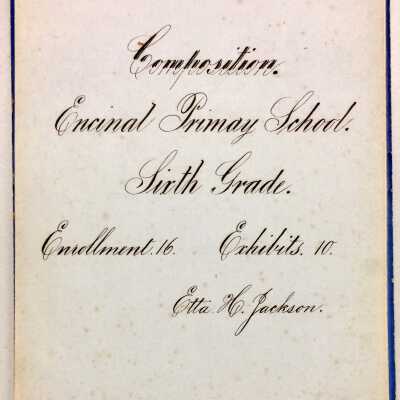 Composition.
Encinal Primay School.
Sixth Grade.
Enrollment. 16. Exhibits. 10.
Etta. H. Jackson.